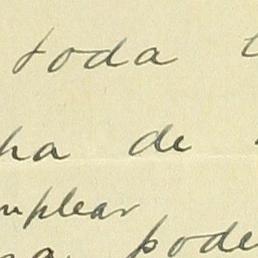 toda
ha de
mplear
pode